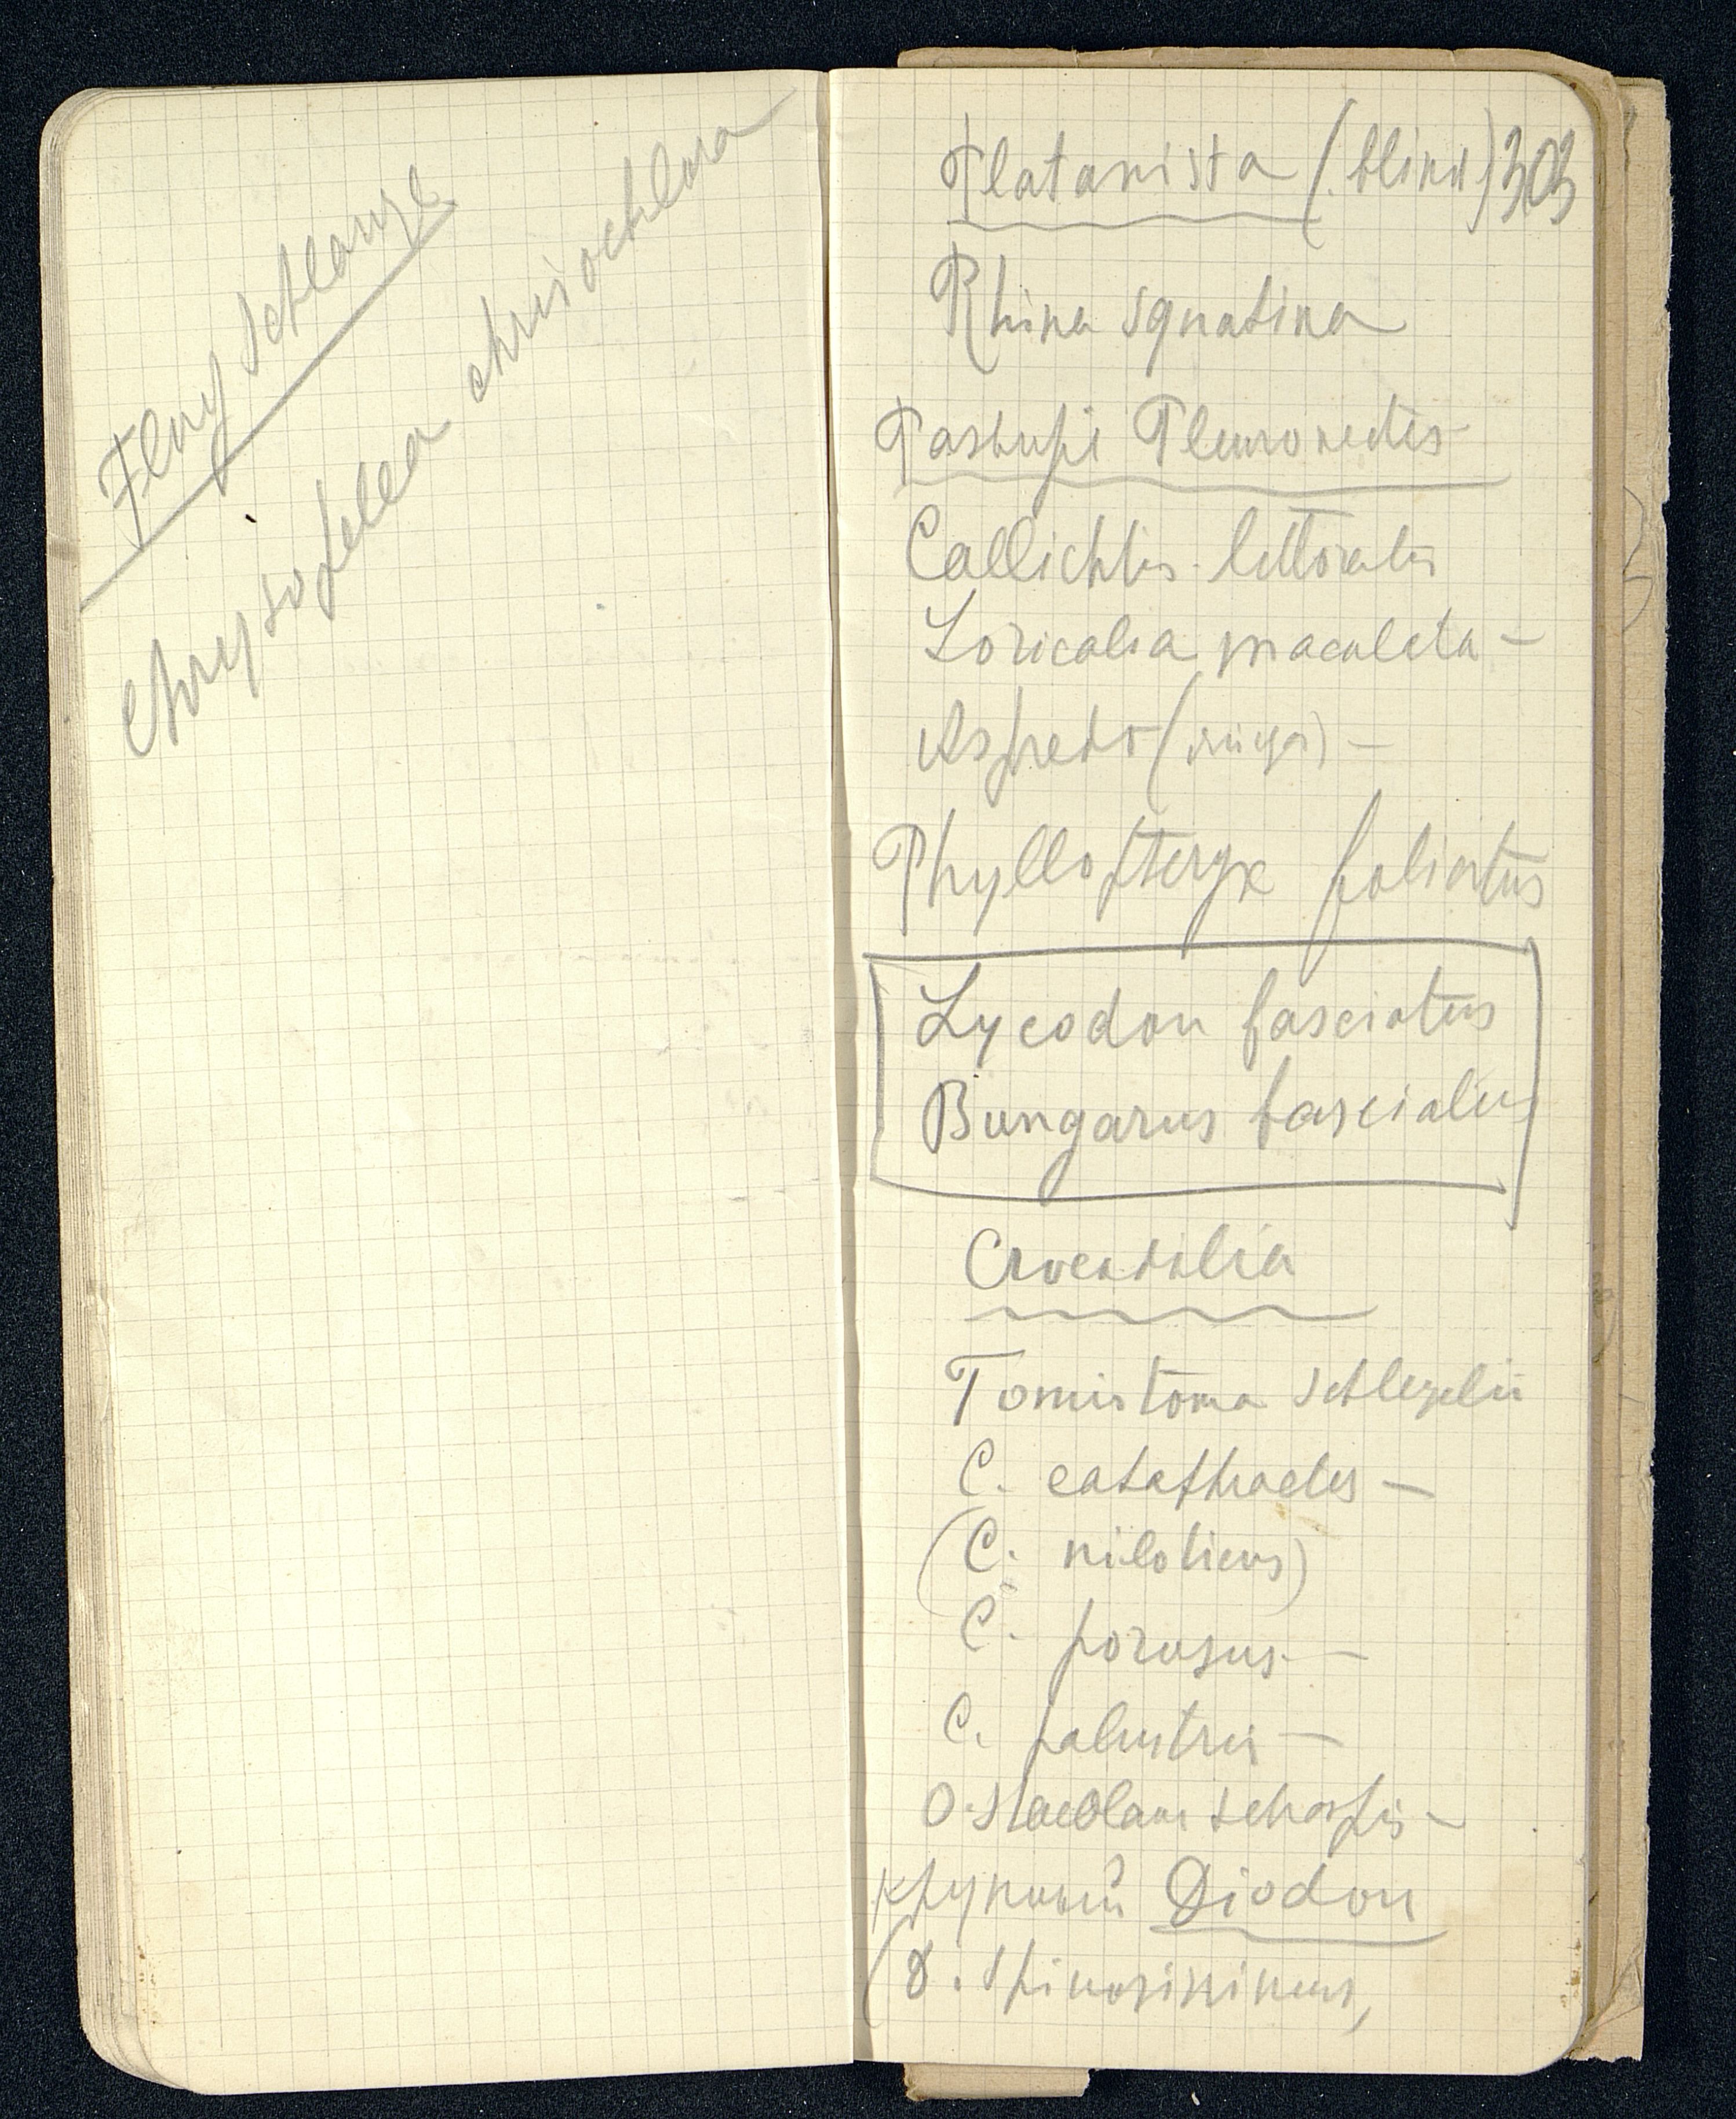 Flug Schlange
Chrysopelea chrisochlora
Platanista (blind) 303
Rhina squatina
Pleuronectes
Callichtis littoralis
Loricaria maculata —
Aspredo
Phyllopteryx foliatus
Lycodon fasciatus
Bungarus fasciatus
Crocodilia
Tomistoma schlegelii
C. cataphractus —
(C. niloticus)
C. porosus —
C. palustris —
Osteolaemus
крупный Diodon
(D. spinosissimus,